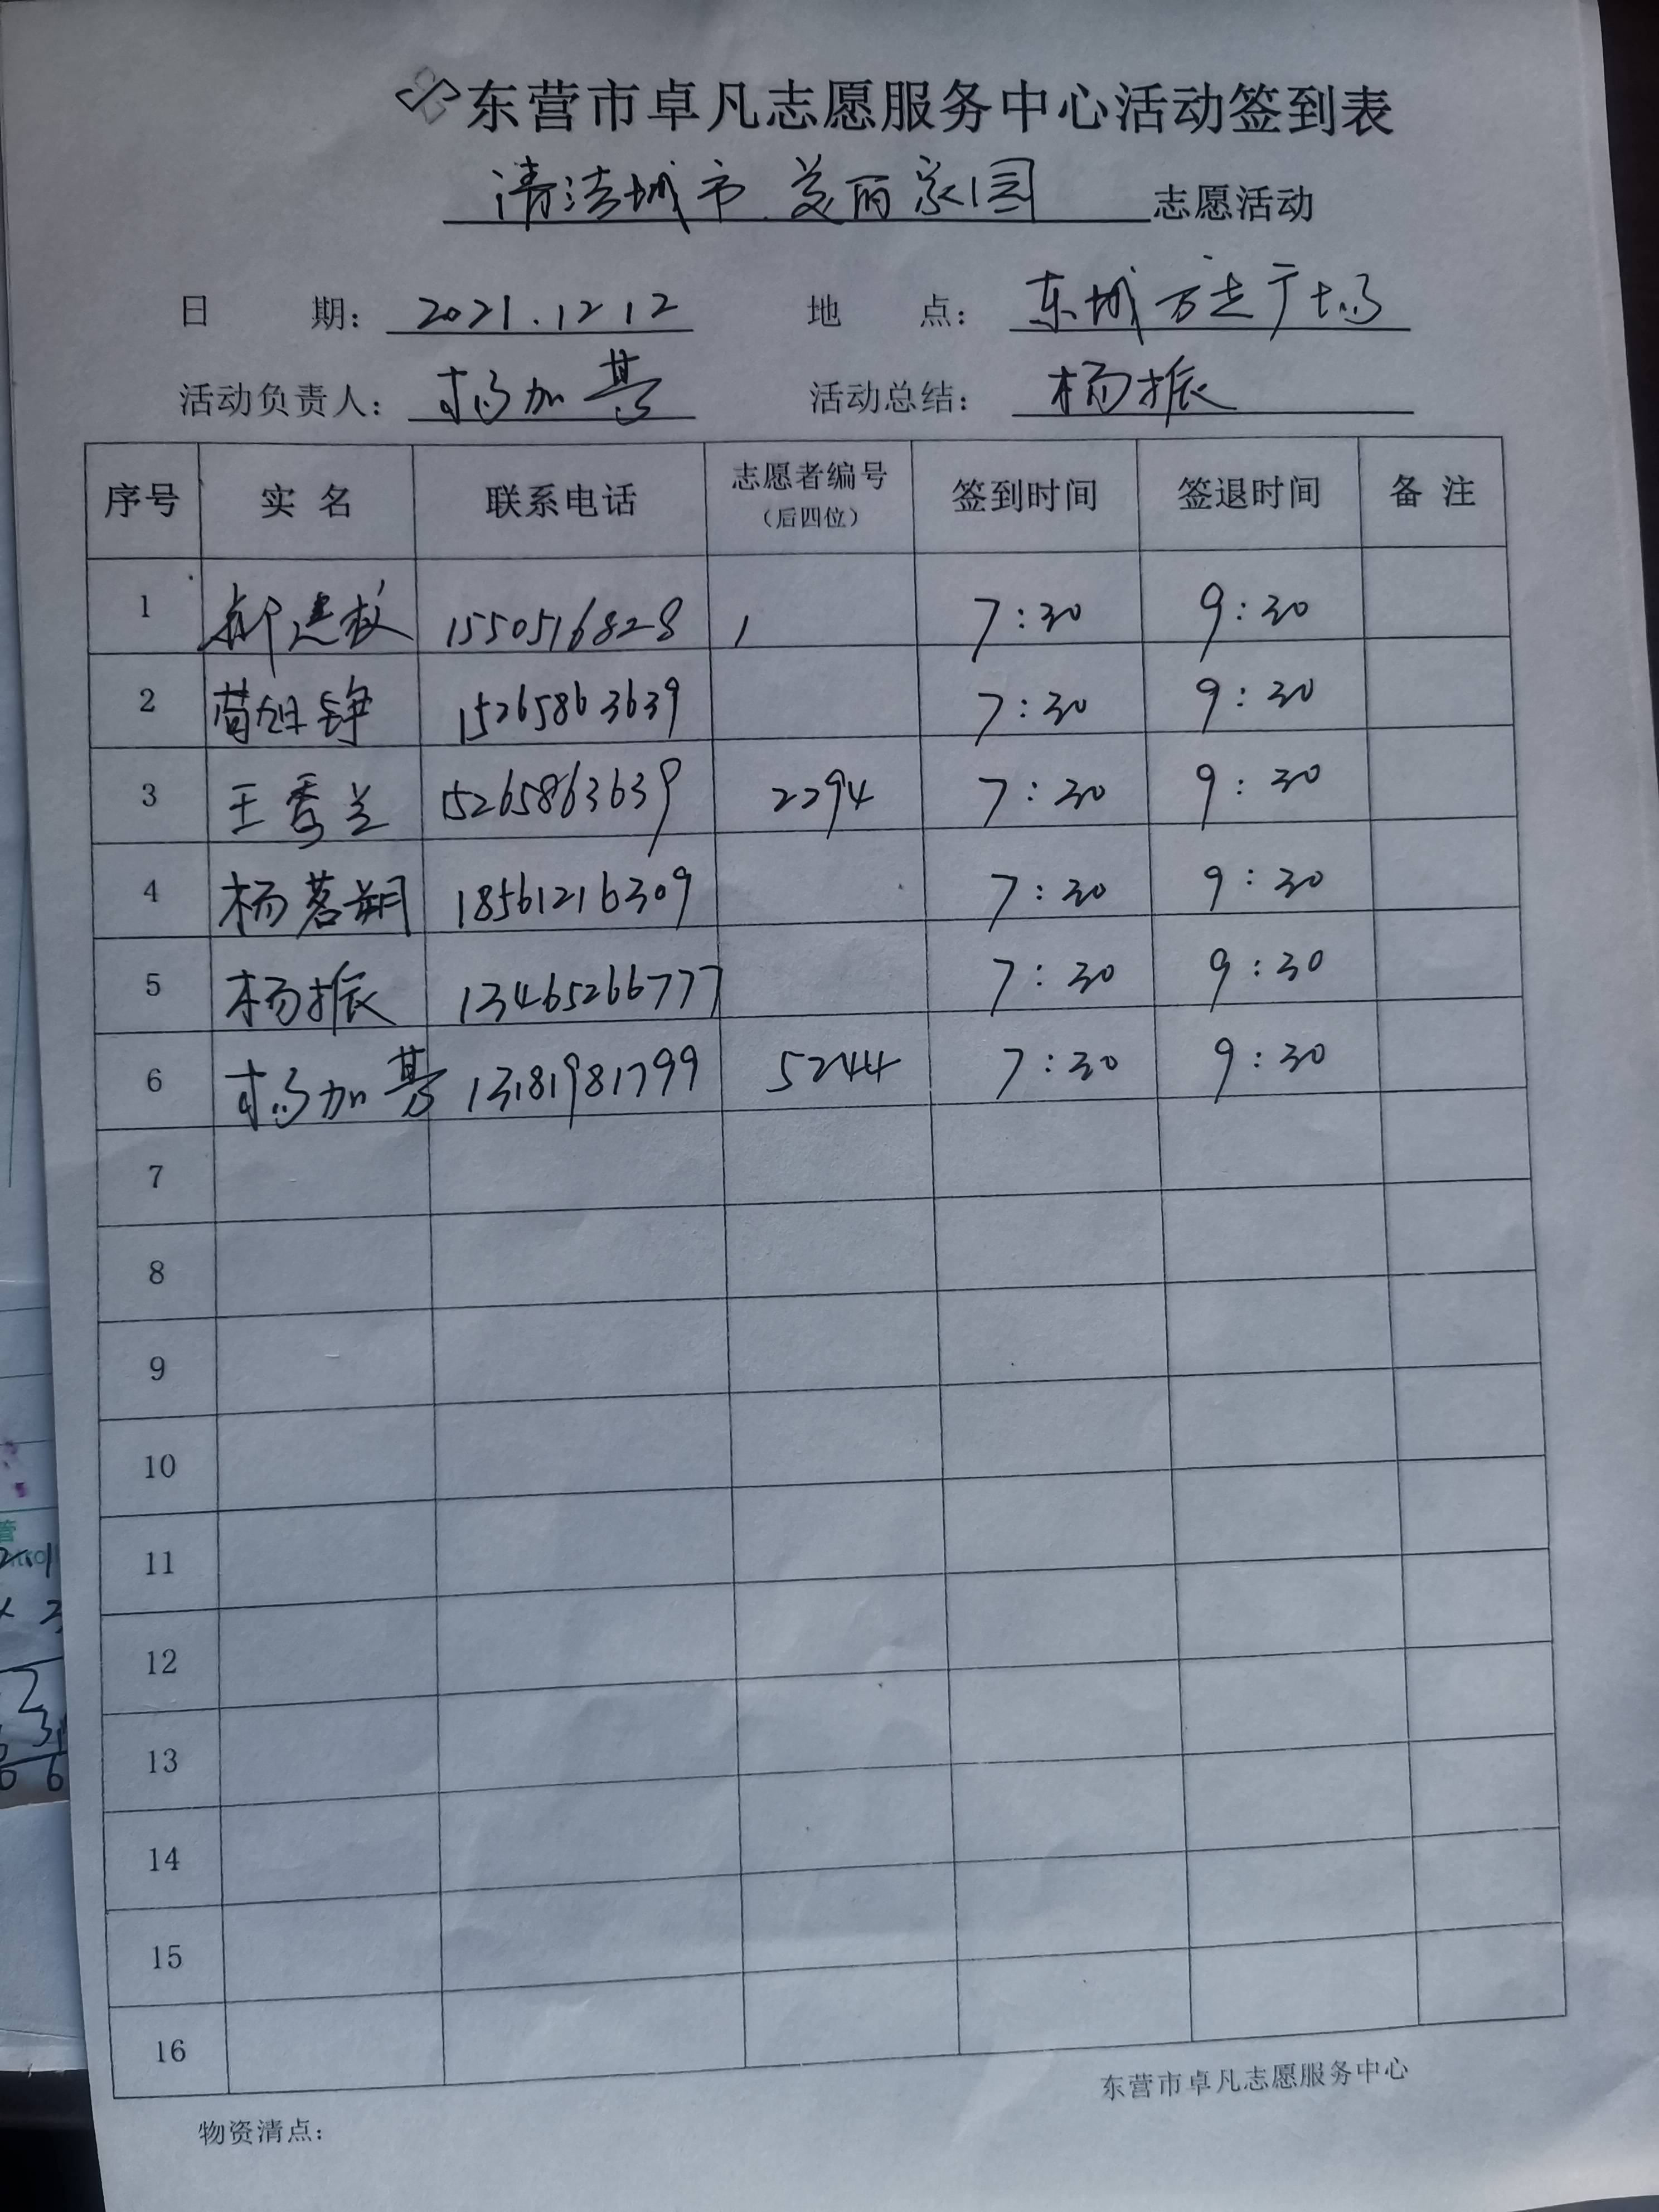 东营市卓凡志愿服务中心活动签到表
清洁城市 美丽家园 志愿活动
日 期: 2021.12 12 地 点: 东城万达广场
活动负责人: 杨加基 活动总结: 杨振
序号 实 名 联系电话 志愿者编号 (后四位) 签到时间 签退时间 备 注
1 1550516828 1 7:30 9:30
2 15265863639 7:30 9:30
3 王秀兰 15265863639 2294 7:30 9:30
4 杨茗朔 18561216309 7:30 9:30
5 杨振 13465266777 7:30 9:30
6 杨加基 13181981799 5244 7:30 9:30
7
8
9
10
11
12
13
14
15
16
东营市卓凡志愿服务中心
物资清点: